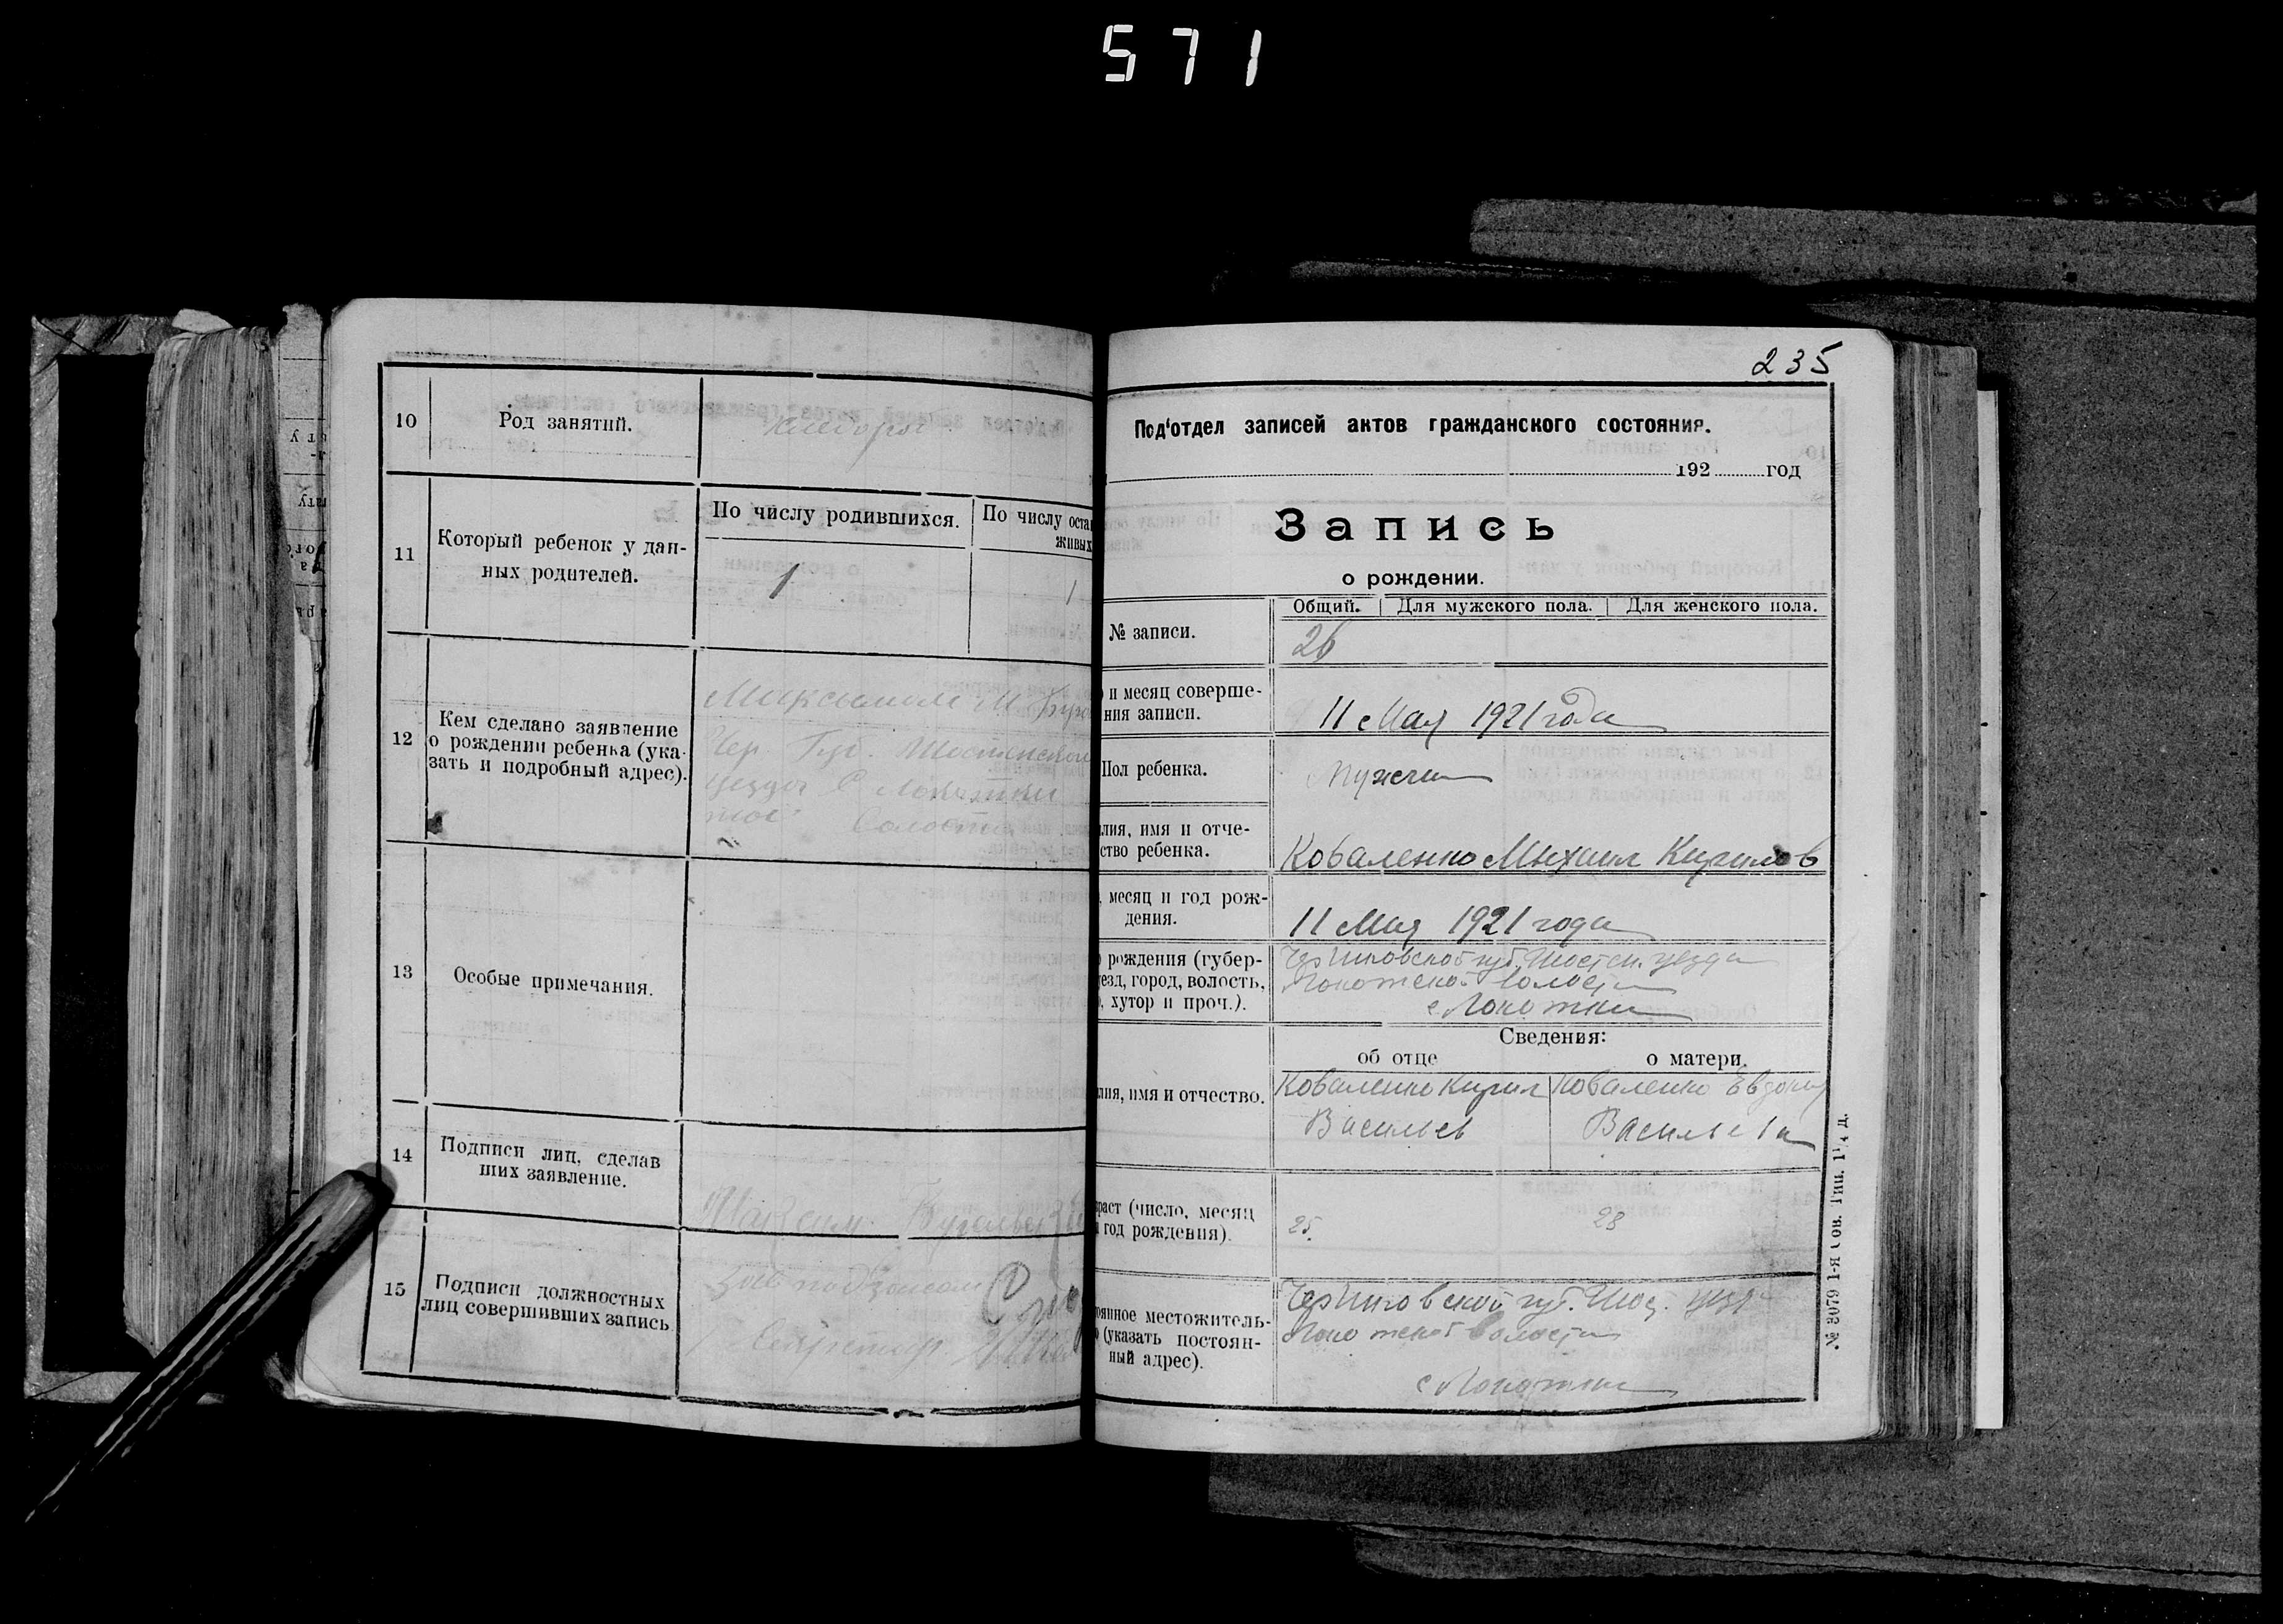 571
10 Род занятий. хлебороб
11 Который ребенок у дан-
ных родителей.
По числу родившихся. По числу оста
живых
1 1
12 Кем сделано заявление
о рождении ребенка (ука-
зать и подробный адрес).
Чер. Губ. Шостенской
уезда С Локотки
волости
13 Особые примечания.
14 Подписи лиц, сделав
ших заявление.
Максим
15 Подписи должностных
лиц совершивших запись
Секретар
235
Под'отдел записей актов гражданского состояния.
192 год
Запись
о рождении.
Общий. Для мужского пола. Для женского пола.
№ записи. 26
и месяц соверше-
ния записи.
11 Мая 1921 года
Пол ребенка. Мужски
лия, имя и отче-
ство ребенка.
Коваленко Михаил Кирилов
, месяц и год рож-
дения.
11 Мая 1921 года
рождения (губер-
уезд, город, волость,
, хутор и проч.).
Черниговской губ. Шостен. уезда
Локотской волости
с Локотки
Сведения:
об отце о матери.
лия, имя и отчество.
Коваленко Кирил Коваленко Евдокия
Васильев Васильева
раст (число, месяц
год рождения).
25. 28
оянное местожитель-
(указать постоян-
ный адрес).
Черниговской губ. Шос. уезд
Локотской Волости
с Локотки
№ 3079 1-я Сов. Тип. 1¼ д.